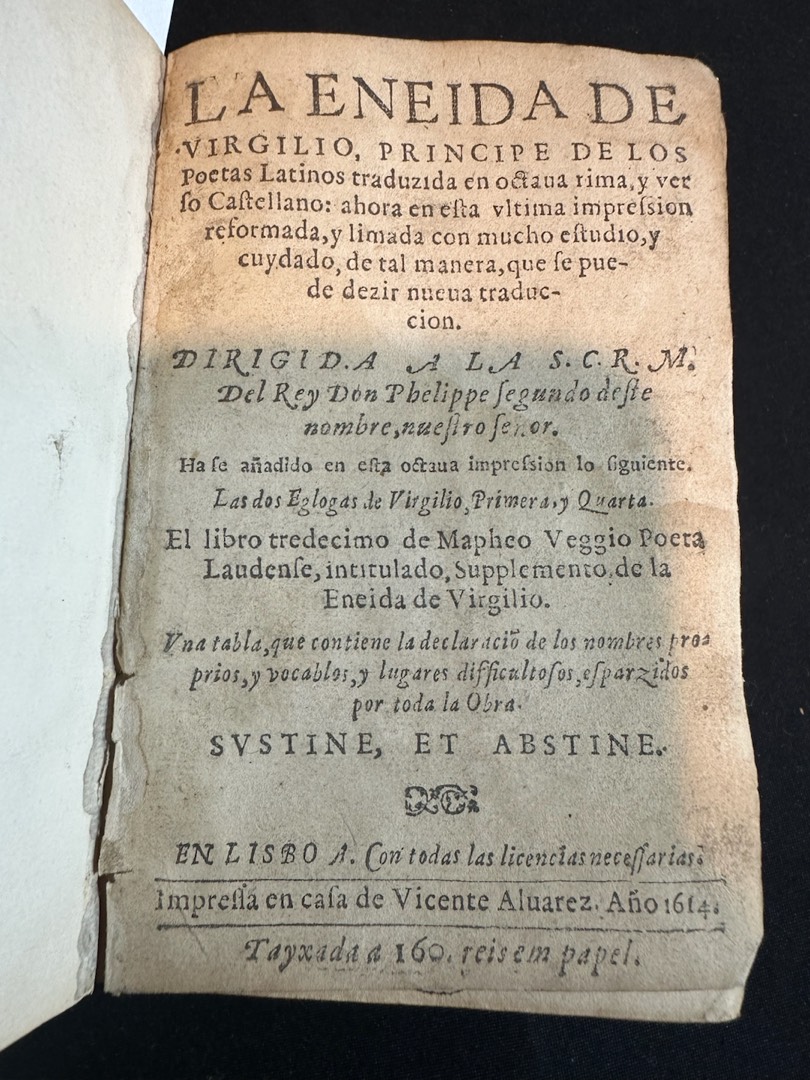 LA ENEIDA DE
VIRGILIO, PRINCIPE DE LOS
Poetas Latinos traduzida en octaua rima, y ver
ſo Caſtellano: ahora en eſta vltima impreſsion
reformada, y limada con mucho eſtudio, y
cuydado, de tal manera, que ſe pue-
de dezir nueua traduc-
cion.
DIRIGIDA A LA S. C. R. M.
Del Rey Don Phelippe ſegundo deſte
nombre, nueſtro ſeñor.
Ha ſe añadido en eſta octaua impreſsion lo ſiguiente.
Las dos Eglogas de Virgilio, Primera, y Quarta.
El libro tredecimo de Mapheo Veggio Poeta
Laudenſe, intitulado, Supplemento de la
Eneida de Virgilio.
Vna tabla, que contiene la declaraciõ de los nombres pro-
prios, y vocablos, y lugares difficultoſos, eſparzidos
por toda la Obra.
SVSTINE, ET ABSTINE.
EN LISBOA. Con todas las licencias neceſſarias.
Impreſſa en caſa de Vicente Aluarez. Año 1614.
Tayxada a 160. reis em papel.